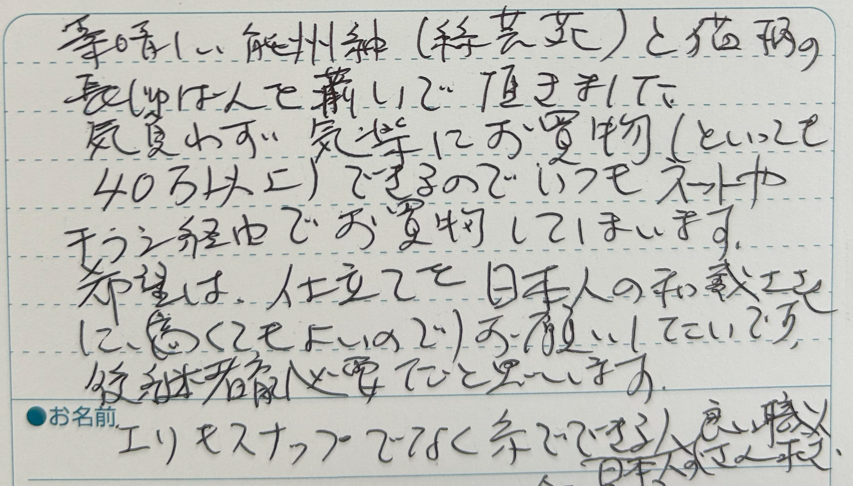 素晴しい 能州紬（絲芸苑）と猫柄の
長じゅばんを 着いで 頂きました
気負わず 気楽に お買物（といっても
40万以上）できるので いつも ネットや
チラシ経由で お買物 してしまいます。
希望は、仕立てを 日本人の和裁士さん
に、（高くてもよいので）お願いしたいです。
後継者育 必要だと思います。
●お名前
エリもスナップでなく 糸でできる人 良い職人
日本人の さん